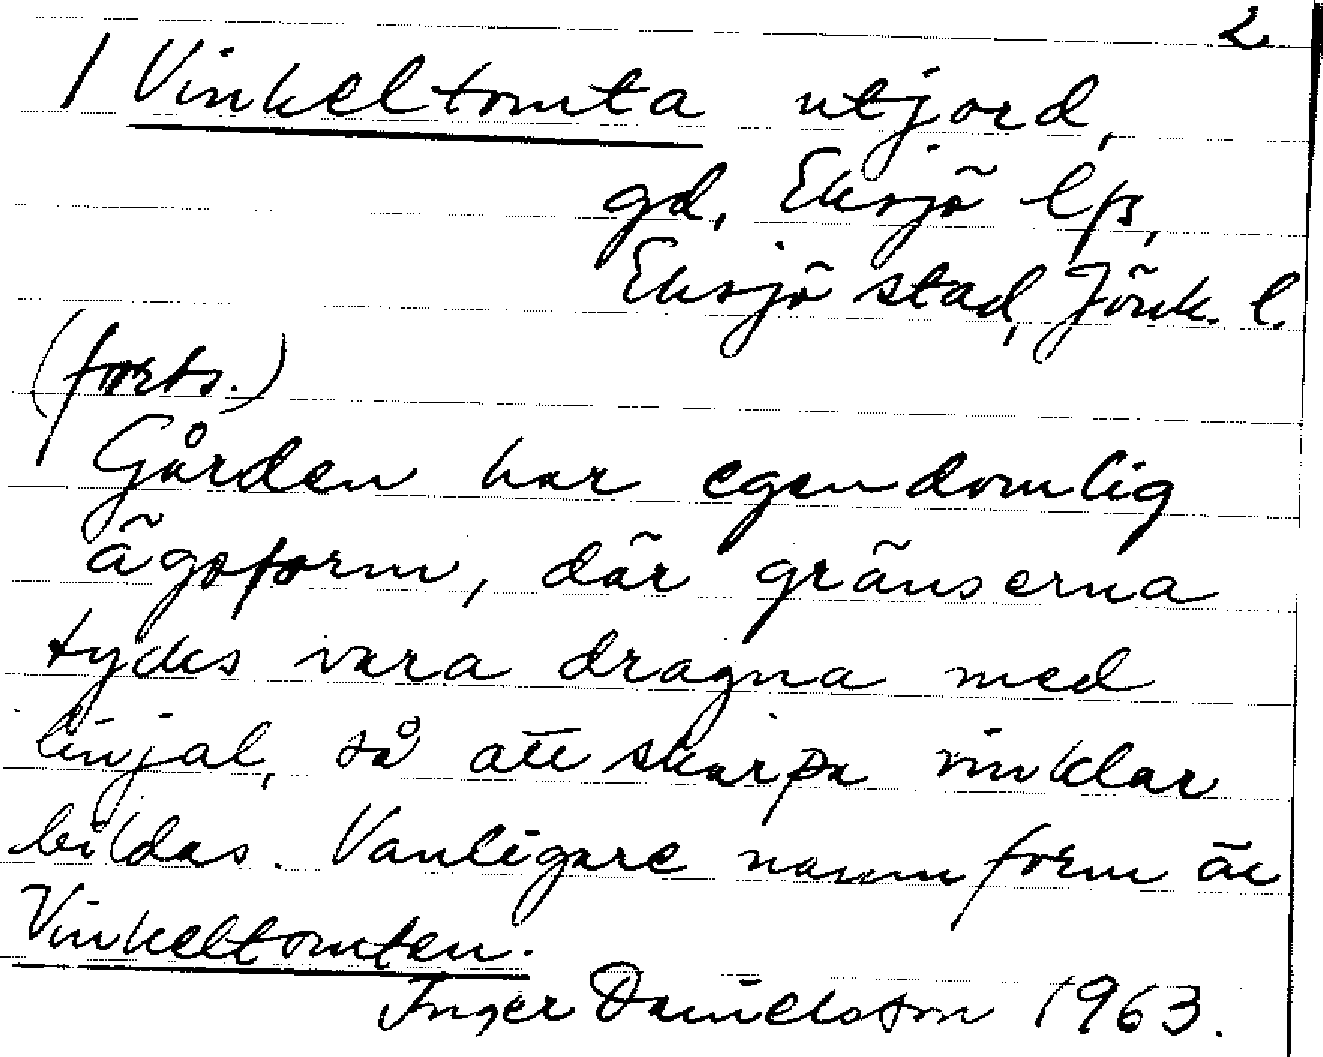 2
/ Vinkeltomta utjord,
gd, Eksjö lfs,
Eksjö stad, Jönk. l.
(forts.)
Gården har egendomlig
ägoform, där gränserna
tycks vara dragna med
linjal, så att skarpa vinklar
bildas. Vanligare namnform är
Vinkeltomten.
Inger Danielsson 1963.